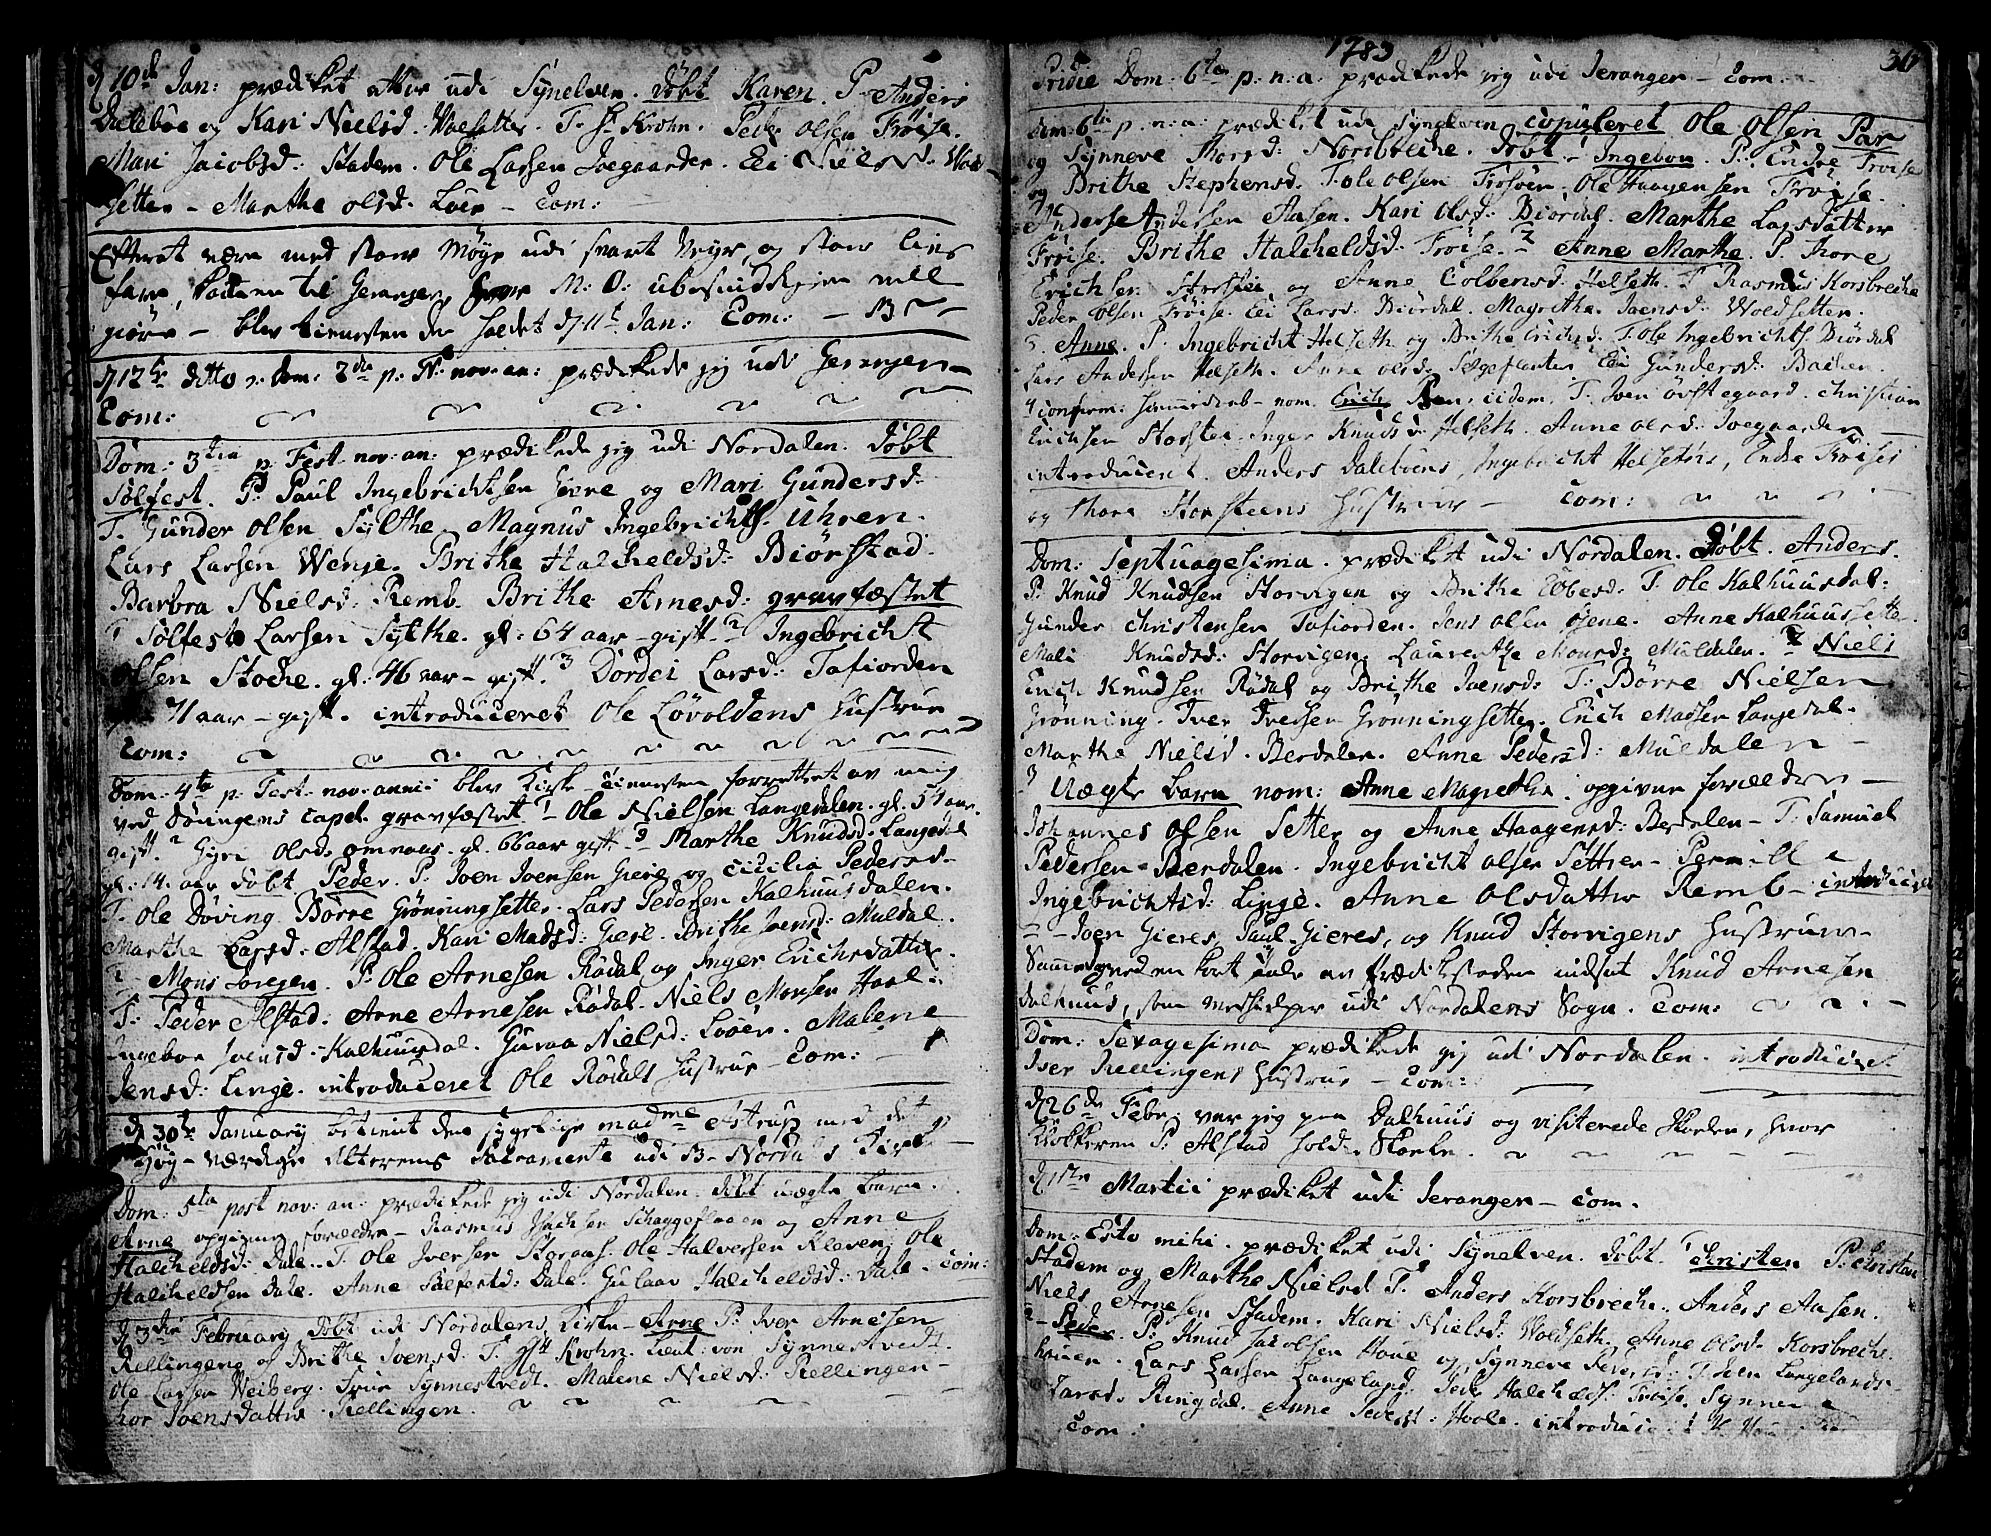 d 10de Jan: prædiket atter udi Synelven. Døbt Karen. P. Anders
Daleböe og Kari Nielsd. Woldsetter. T. Sr Krohn. Peder Olsen Frøise.
Mari Jacobsd: Stadem. Ole Larsen Joegaarder. Eli Nielsd. Wold
setter - Marthe Olsd. Löer - Com:
Efterat være med stor Møye udi svart Veyr, og stor livs
fare, kommen til Geranger, M: O:
giöre - blev tienesten der holdet d 11te Jan: Com: -
d 12te ditto Dom: 2die p: F: nov: an: prædikede jeg udi Geranger -
Com:
Dom: 3tia p: Fest. nov: an: prædikede jeg udi Nordalen. Døbt
Sølfest. P: Paul Ingebrichtsen Giere og Mari Gundersd.
T. Gunder Olsen Sylthe. Magnus Ingebrichts. Uhren.
Lars Larsen Wenje. Brithe Halcheldsd: Biørstad.
Barbra Nielsd: Remb. Brithe Arnesd: gravfæstet
1 Sølfest Larsen Sylthe. gl: 64 aar - gift. 2 Ingebricht
Olsen Stoche. gl: 46 aar - gift. 3 Dordei Larsd: Tafiorden
71 aar - gift. introduceret Ole Løvoldens Hustrue
Com:
Dom: 4ta p: Fest. nov: anni: blev Kirke-tienesten forrettet av mig
ved Døvingens Capel. gravfæstet 1 Ole Nielsen Langedalen. gl. 54 aar
gift. 2 Gyri Olsd. Omenaas. gl. 66 aar gift 3 Marthe Knudsd. Langedal
gl: 14. aar døbt Peder. P. Joen Joensen Giere og Cicilia Pedersd.
T. Ole Døving. Børre Grønningsetter. Lars Pedersen Kalhuusdalen.
Marthe Larsd: Alstad. Kari Madsd: Giere. Brithe Joensd: Muldal.
2 Mons Joregen. P: Ole Arnesen Rödal og Inger Erichsdatter.
T: Peder Alstad. Arne Arnesen Rødal. Niels Monsen Hoel
Ingebor Joensd: Kalhuusdal. Guroa Nielsd: Løöer. Malene
Jensd: Linge. introduceret Ole Rødals Hustrue - Com: -
d 30te January betient den sygelige madme Astrup med det
Høy-værdige Alterens Sacramente udi Nordals Kirke -
Dom: 5ta post nov: an: prædikede jeg udi Nordalen. Døbt uægte barn
Arne opgivne forældre - Rasmus Skaggeflaaen og Anne
Halcheldsd: Dale. T. Ole Iversen Storaas. Ole Halversen Klaven. Ole
Halcheldsen Dale. Anne Sølfestd: Dale. Gulaar Halcheldsd: Dale - Com:
d 3die February døbt udi Nordalens Kirke - Arne P: Iver Arnesen
Rellingen og Brithe Joensd: T. Krohn. Lieut: von Synnestvedt.
Ole Larsen Weiberg. Frue Synnestvedt. Malene Nielsd: Rellingen -
Joensdatter Rellingen.
1783
36
Pridie Dom: 6ta p: n: a: prædikede jeg udi Jeranger - Com:
Dom: 6ta p: n: a: prædiket udi Synelven copuleret Ole Olsen Par
og Synneve Thorsd: Norsbreche. Døbt 1 Ingebor. P: Endre Frøise
og Brithe Stephensd. T. Ole Olsen Frøisen. Ole Haagensen Frøise.
Anders Andersen Aasen. Kari Olsd: Biørdal. Marthe Larsdatter
Frøise. Brithe Halcheldsd: Frøise. 2 Anne Marthe. P. Thore
Erichsen Storstei og Anne Colbensd. Helseth. T Rasmus Korsbreche
Peder Olsen Frøise. Eli Larsd. Biørdal. Magrethe Joensd: Woldsetter.
3. Anne. P. Ingebricht Helseth og Brithe Erichsd. T. Ole Ingebrichts. Biørdal
Lars Andersen Helseth. Anne Olsd. Eli Gundersd: Bachen.
4 confirm: hiemmedaab - nom. Erich P. iidem. T. Iver Øvstegaard. Christian
Erichsen Storstei. Inger Knudsd. Helseth. Anne Olsd: Joegaarden -
introduceret. Anders Daleböens, Ingebricht Helseths, Endre Frøises
og Thore Storsteens Hustruer - Com:
Dom: Septuagesima. prædiket udi Nordalen. Døbt. Anders.
P. Knud Knudsen Storvigen og Brithe T. Ole Kalhuusdal:
Gunder Christensen Tafiorden. Jens Olsen Øjene. Anne Kalhuussetter.
Mali Knudsd: Storvigen. Laurentze Monsd: Muldalen. 2 Niels
Erich Knudsen Rødal og Brithe Joensd: T: Børre Nielsen
Grønning. Iver Iversen Grønningsetter. Erich Madsen Langedal.
Marthe Nielsd. Berdalen. Anne Pedersd: Muldalen -
3 Uægte barn nom: Anne Magrethe: opgivne forældre -
Johannes Olsen Setter og Anne Haagensd: Berdalen - T: Samuel
Pedersen Berdalen. Ingebricht Olsen Setter - Pernille
Ingebrichtsd: Linge. Anne Olsdatter Remb - introducer
Joen Gieres, Paul Gieres, og Knud Storvigens Hustruer -
Sammesteden kort tale av Prædikestolen indsat Knud Arnesen
Dalhuus, som Medhielper udi Nordalens Sogn. Com:
Dom: Sexagesima prædikede jeg udi Nordalen. introducer
Iver Rellingens Hustrue - Com:
d 26de Febr: var jeg paa Dalhuus og visiterede Skolen, hvor
Klokkeren P: Alstad holder Skole.
d 1ste Martii prædiket udi Jeranger - Com.
Dom: Esto mihi. prædiket udi Synelven. døbt. 1 Christen P. Christen
Stadem og Marthe Nielsd T. Anders Korsbreche. Anders Aasen.
Niels Arnesen Stadem. Kari Nielsd: Woldseth. Anne Olsd. Korsbreche.
2 - Peder. P: Knud Jacobsen Houe og Synneve Pedersd: T. Joen Langelands-
houen. Lars Larsen Langeland. Peder Halchelds. Frøise. Synneve
Larsd. Ringdal. Anne Pedersd: Hoole. introducer:
Com: